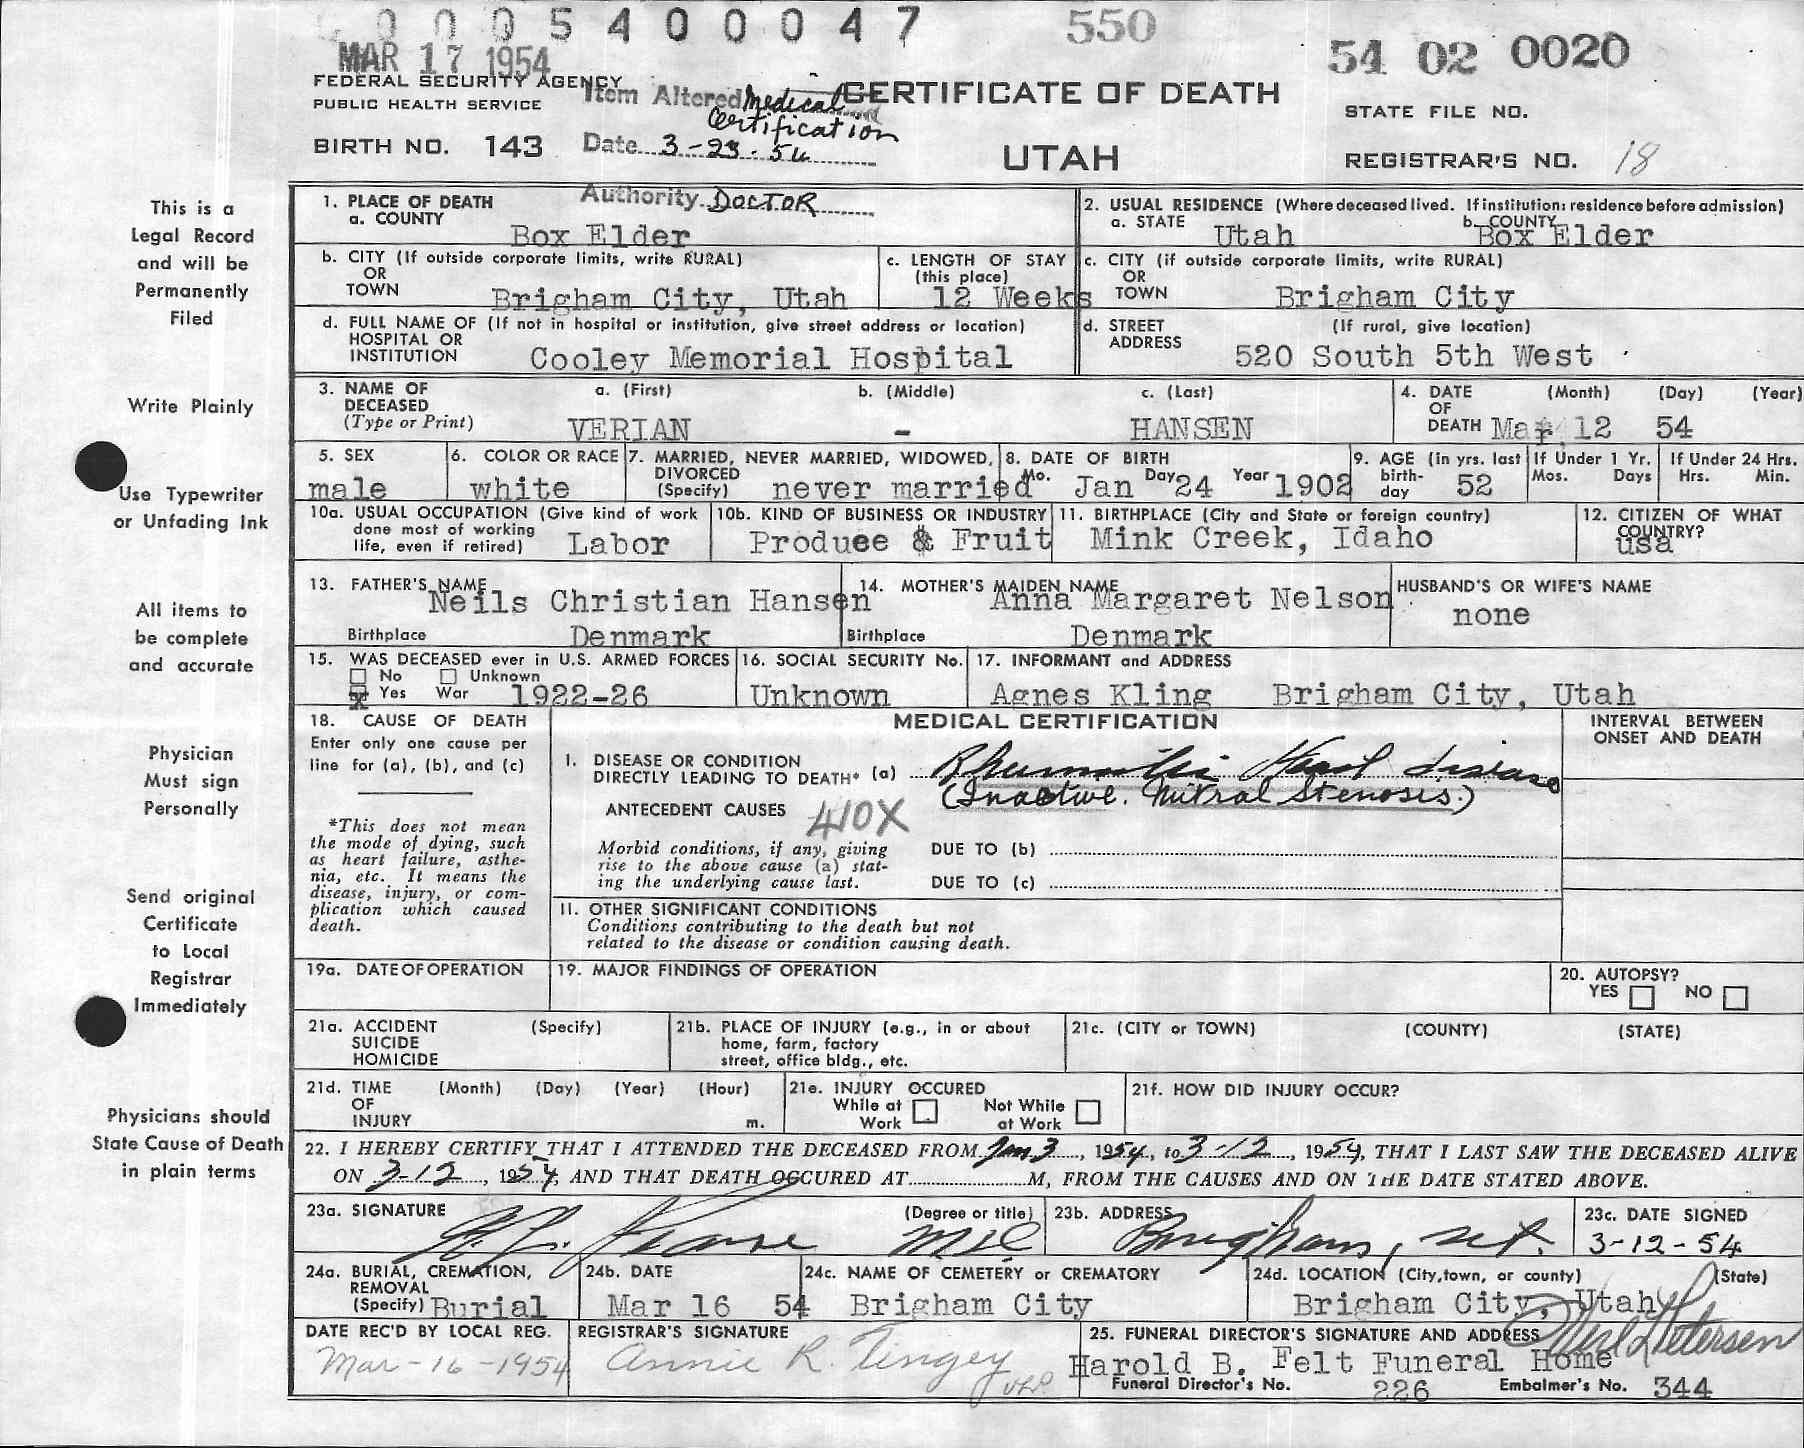 0005400047 550
MAR 17 1954
54 02 0020
FEDERAL SECURITY AGENCY
PUBLIC HEALTH SERVICE
Item Altered Medical Certification
CERTIFICATE OF DEATH
STATE FILE NO.
BIRTH NO. 143
Date 3-23-54
UTAH
REGISTRAR'S NO. 18
Authority DOCTOR
This is a
Legal Record
and will be
Permanently
Filed
Write Plainly
Use Typewriter
or Unfading Ink
All items to
be complete
and accurate
Physician
Must sign
Personally
Send original
Certificate
to Local
Registrar
Immediately
Physicians should
State Cause of Death
in plain terms
1. PLACE OF DEATH
a. COUNTY
Box Elder
2. USUAL RESIDENCE (Where deceased lived. If institution: residence before admission)
a. STATE Utah b. COUNTY Box Elder
b. CITY (If outside corporate limits, write RURAL)
OR
TOWN Brigham City, Utah
c. LENGTH OF STAY
(this place)
12 Weeks
c. CITY (if outside corporate limits, write RURAL)
OR
TOWN Brigham City
d. FULL NAME OF (If not in hospital or institution, give street address or location)
HOSPITAL OR
INSTITUTION Cooley Memorial Hospital
d. STREET (If rural, give location)
ADDRESS 520 South 5th West
3. NAME OF a. (First) b. (Middle) c. (Last)
DECEASED
(Type or Print) VERIAN - HANSEN
4. DATE (Month) (Day) (Year)
OF
DEATH Mar 12 54
5. SEX
male
6. COLOR OR RACE
white
7. MARRIED, NEVER MARRIED, WIDOWED,
DIVORCED
(Specify) never married
8. DATE OF BIRTH
Mo. Jan Day 24 Year 1902
9. AGE (in yrs. last
birth-
day 52
If Under 1 Yr.
Mos. Days
If Under 24 Hrs.
Hrs. Min.
10a. USUAL OCCUPATION (Give kind of work
done most of working
life, even if retired) Labor
10b. KIND OF BUSINESS OR INDUSTRY
Produce & Fruit
11. BIRTHPLACE (City and State or foreign country)
Mink Creek, Idaho
12. CITIZEN OF WHAT
COUNTRY?
usa
13. FATHER'S NAME
Neils Christian Hansen
Birthplace Denmark
14. MOTHER'S MAIDEN NAME
Anna Margaret Nelson
Birthplace Denmark
HUSBAND'S OR WIFE'S NAME
none
15. WAS DECEASED ever in U.S. ARMED FORCES
No Unknown
x Yes War 1922-26
16. SOCIAL SECURITY No.
Unknown
17. INFORMANT and ADDRESS
Agnes Kling Brigham City, Utah
18. CAUSE OF DEATH
Enter only one cause per
line for (a), (b), and (c)
*This does not mean
the mode of dying, such
as heart failure, asthe-
nia, etc. It means the
disease, injury, or com-
plication which caused
death.
MEDICAL CERTIFICATION
INTERVAL BETWEEN
ONSET AND DEATH
I. DISEASE OR CONDITION
DIRECTLY LEADING TO DEATH* (a) Rheumatic Heart disease
(Inactive. Mitral Stenosis.)
ANTECEDENT CAUSES 410X
Morbid conditions, if any, giving
rise to the above cause (a) stat-
ing the underlying cause last.
DUE TO (b)
DUE TO (c)
II. OTHER SIGNIFICANT CONDITIONS
Conditions contributing to the death but not
related to the disease or condition causing death.
19a. DATE OF OPERATION
19. MAJOR FINDINGS OF OPERATION
20. AUTOPSY?
YES NO
21a. ACCIDENT (Specify)
SUICIDE
HOMICIDE
21b. PLACE OF INJURY (e.g., in or about
home, farm, factory
street, office bldg., etc.
21c. (CITY or TOWN) (COUNTY) (STATE)
21d. TIME (Month) (Day) (Year) (Hour)
OF
INJURY m.
21e. INJURY OCCURED
While at Work Not While at Work
21f. HOW DID INJURY OCCUR?
22. I HEREBY CERTIFY THAT I ATTENDED THE DECEASED FROM Jan 3, 1954, to 3-12, 1954, THAT I LAST SAW THE DECEASED ALIVE
ON 3-12, 1954, AND THAT DEATH OCCURED AT M, FROM THE CAUSES AND ON THE DATE STATED ABOVE.
23a. SIGNATURE (Degree or title)
MD
23b. ADDRESS
Brigham, Ut.
23c. DATE SIGNED
3-12-54
24a. BURIAL, CREMATION,
REMOVAL
(Specify) Burial
24b. DATE
Mar 16 54
24c. NAME OF CEMETERY or CREMATORY
Brigham City
24d. LOCATION (City, town, or county) (State)
Brigham City, Utah
DATE REC'D BY LOCAL REG.
Mar-16-1954
REGISTRAR'S SIGNATURE
Annie R. Tingey
25. FUNERAL DIRECTOR'S SIGNATURE AND ADDRESS
Petersen
Harold B. Felt Funeral Home
Funeral Director's No. 226 Embalmer's No. 344